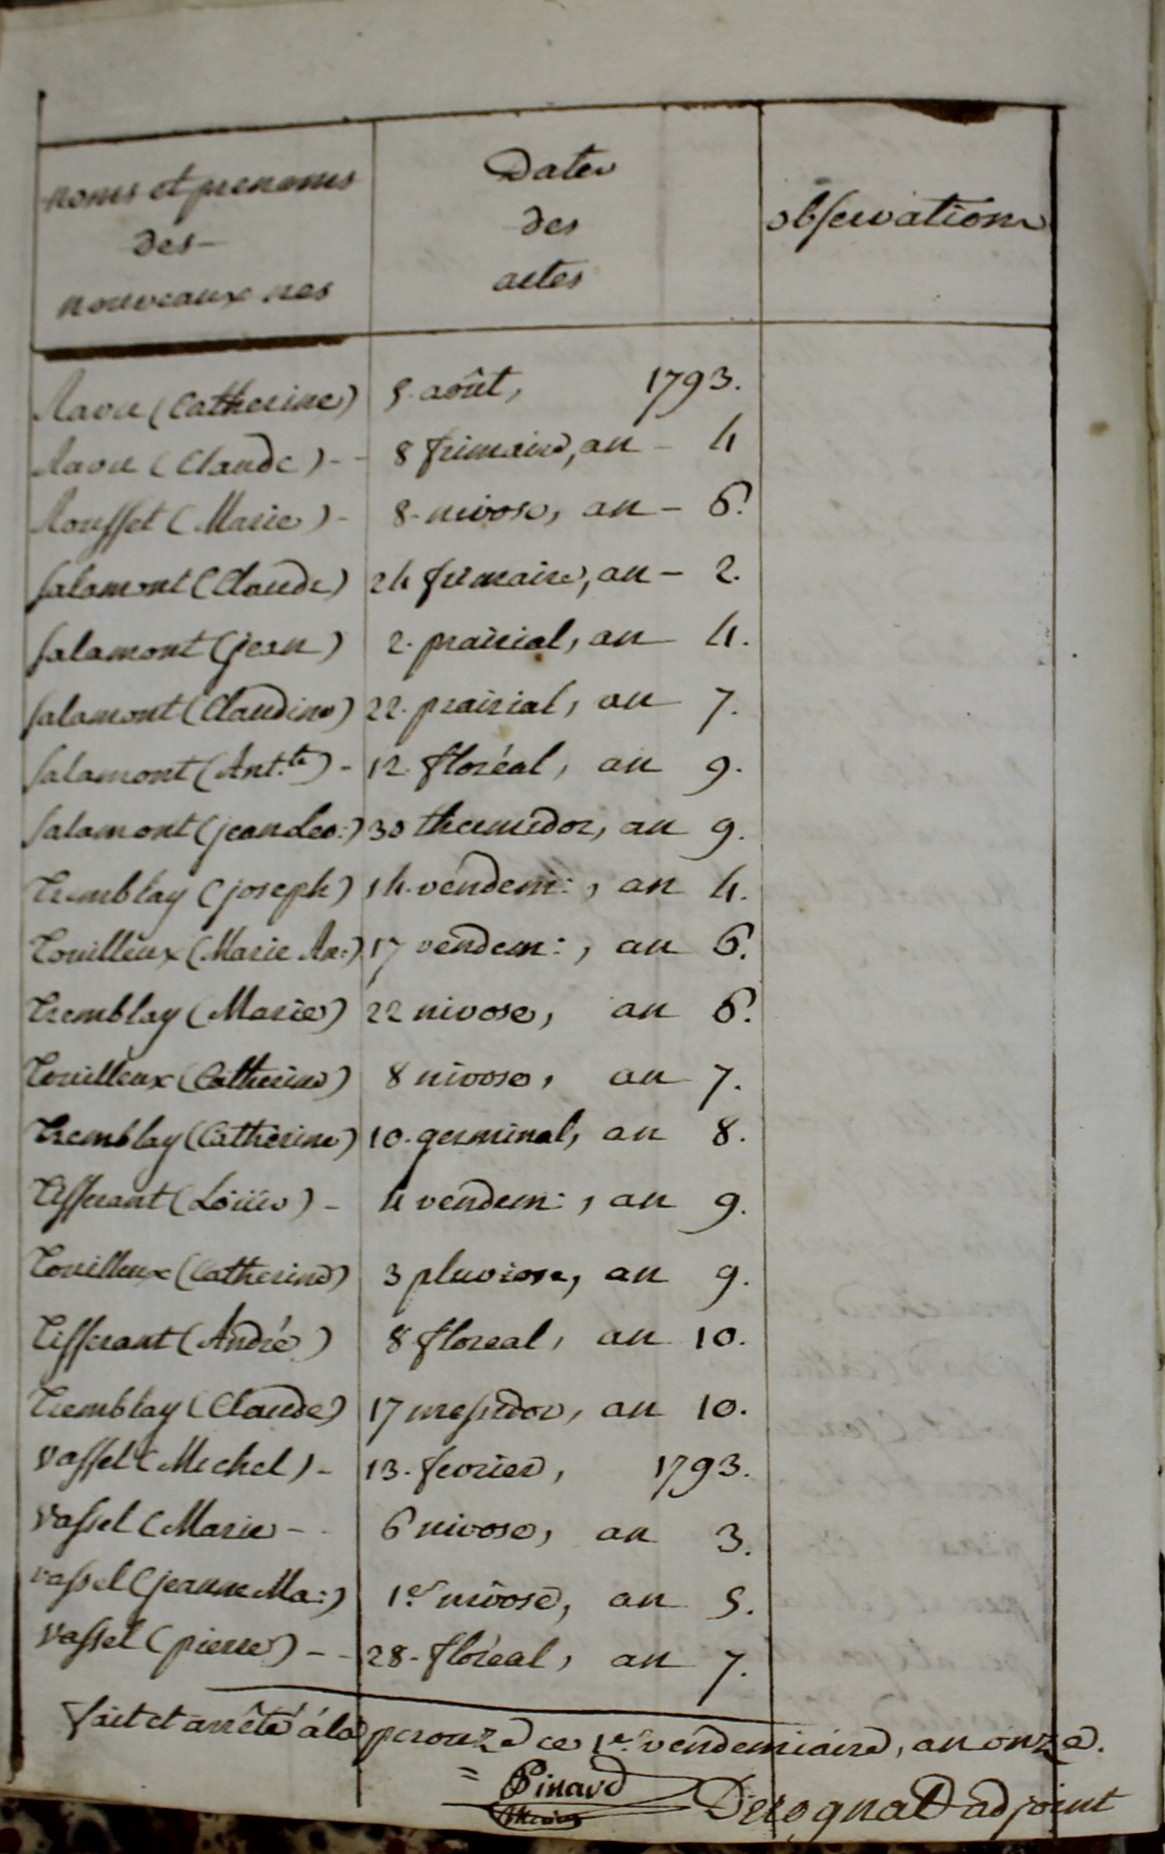 noms et prenoms
des
nouveaux nes
Dates
des
actes
observations
Ravu (Catherine) 5. août, 1793.
Ravu (Claude) - - 8 frimaire, an - 4
Rousset (Marie) - 8. nivose, an - 6.
Salamont (Claude) 24 frimaire, an - 2.
Salamont (jean) 2. prairial, an 4.
Salamont (Claudine) 22. prairial, an 7.
Salamont (Ant.te) - 12. floréal, an 9.
Salamont (jean Leo:) 30 thermidor, an 9.
Tremblay (joseph) 14. vendem: , an 4.
Touilleux (Marie An:) 17 vendem: , an 6.
Tremblay (Marie) 22 nivose, an 6.
Touilleux (Catherine) 8 nivose, an 7.
Tremblay (Catherine) 10. germinal, an 8.
Tisserant (Loüise) - 4 vendem: , an 9.
Touilleux (Catherine) 3 pluviose, an 9.
Tisserant (André) 8 floreal, an 10.
Tremblay (Claude) 17 messidor, an 10.
Vassel (Michel) - 13. fevrier, 1793.
Vassel (Marie - - 6 nivose, an 3.
Vassel (jeanne Ma:) 1.er nivose, an 5.
Vassel (pierre) - - 28. floréal, an 7.
fait et arrêté á la perouze ce 1.er vendemiaire, an onze.
= Pinard
Derognat adjoint